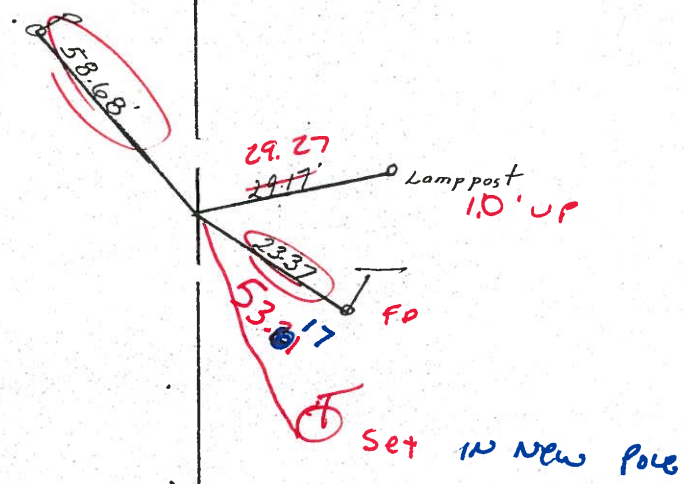 58.68'
29.27
29.17'
Lamppost
1.0' UP
23.37
FD
53.17
Set IN New Pole